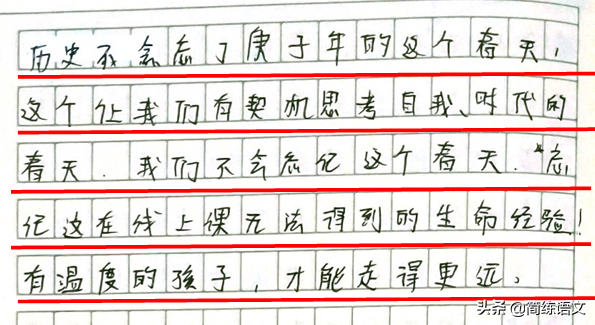 历史不会忘了庚子年的这个春天，
这个让我们有契机思考自我、时代的
春天. 我们不会忘记这个春天."忘
记这在线上课无法得到的生命经验!
有温度的孩子，才能走得更远。
头条 @简练语文